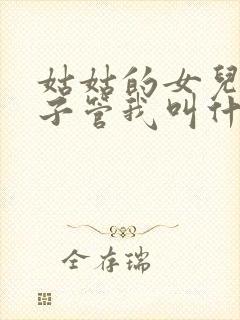 姑姑的女兒
子管我叫什
全存瑞